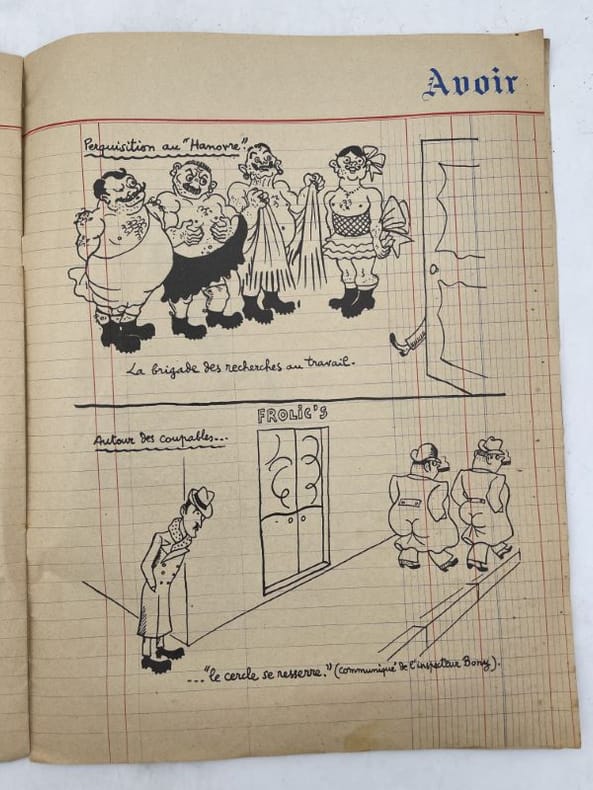 Avoir
Perquisition au "Hanovre".
La brigade des recherches au travail.
FROLIC'S
Autour des coupables...
..."le cercle se resserre." (communiqué de l'inspecteur Bony).